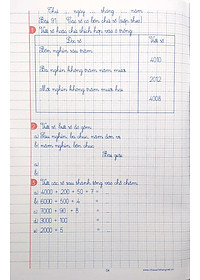 Thứ ... ngày ... tháng ... năm ...
Bài 91. Các số có bốn chữ số (tiếp theo)
1 Viết số hoặc chữ thích hợp vào ô trống
Đọc số
Viết số
Bốn nghìn sáu trăm
4010
Ba nghìn không trăm năm mươi
2012
Một nghìn không trăm mười hai
4008
2 Viết, biết số đó gồm
a) nghìn, hai chục, năm đơn vị
b) năm nghìn, bốn chục
Bài giải
a)
b)
3 Viết các số sau thành tổng vào chỗ chấm
a) 4000 + 200 + 50 + 7 =
b) 6000 + 500 + 4 = ...
c) 7000 + 90 + 8 = ...
d) 3000 + 600 = ...
e) 2000 + 5 = ...